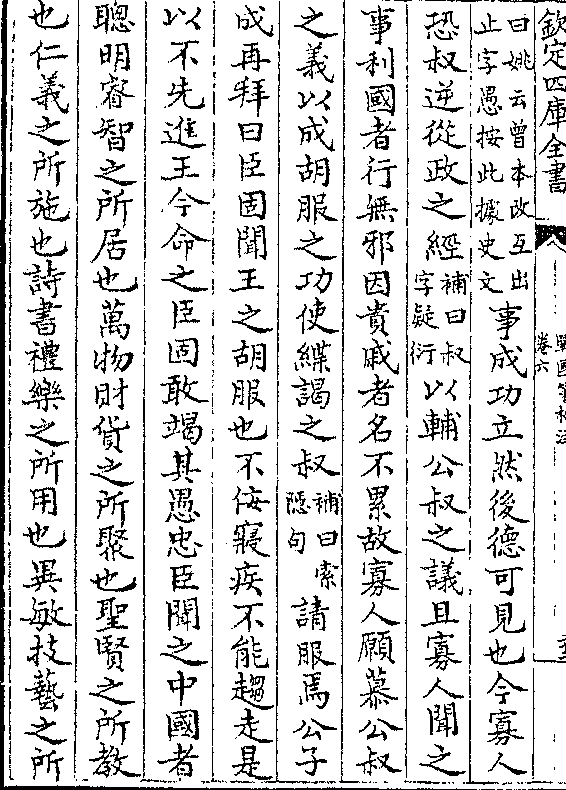 欽定四庫全書
戰國策校注
卷六
曰姚云曾本改互出
止字愚按此據史文
事成功立然後德可見也今寡人
恐叔逆從政之經補曰叔
字疑衍以輔公叔之議且寡人聞之
事利國者行無邪因貴戚者名不累故寡人願慕公叔
之義以成胡服之功使緤謁之叔補曰索
隱句請服焉公子
成再拜曰臣固聞王之胡服也不佞寢疾不能趨走是
以不先進王今命之臣固敢竭其愚忠臣聞之中國者
聰明睿智之所居也萬物財貨之所聚也聖賢之所教
也仁義之所施也詩書禮樂之所用也異敏技藝之所